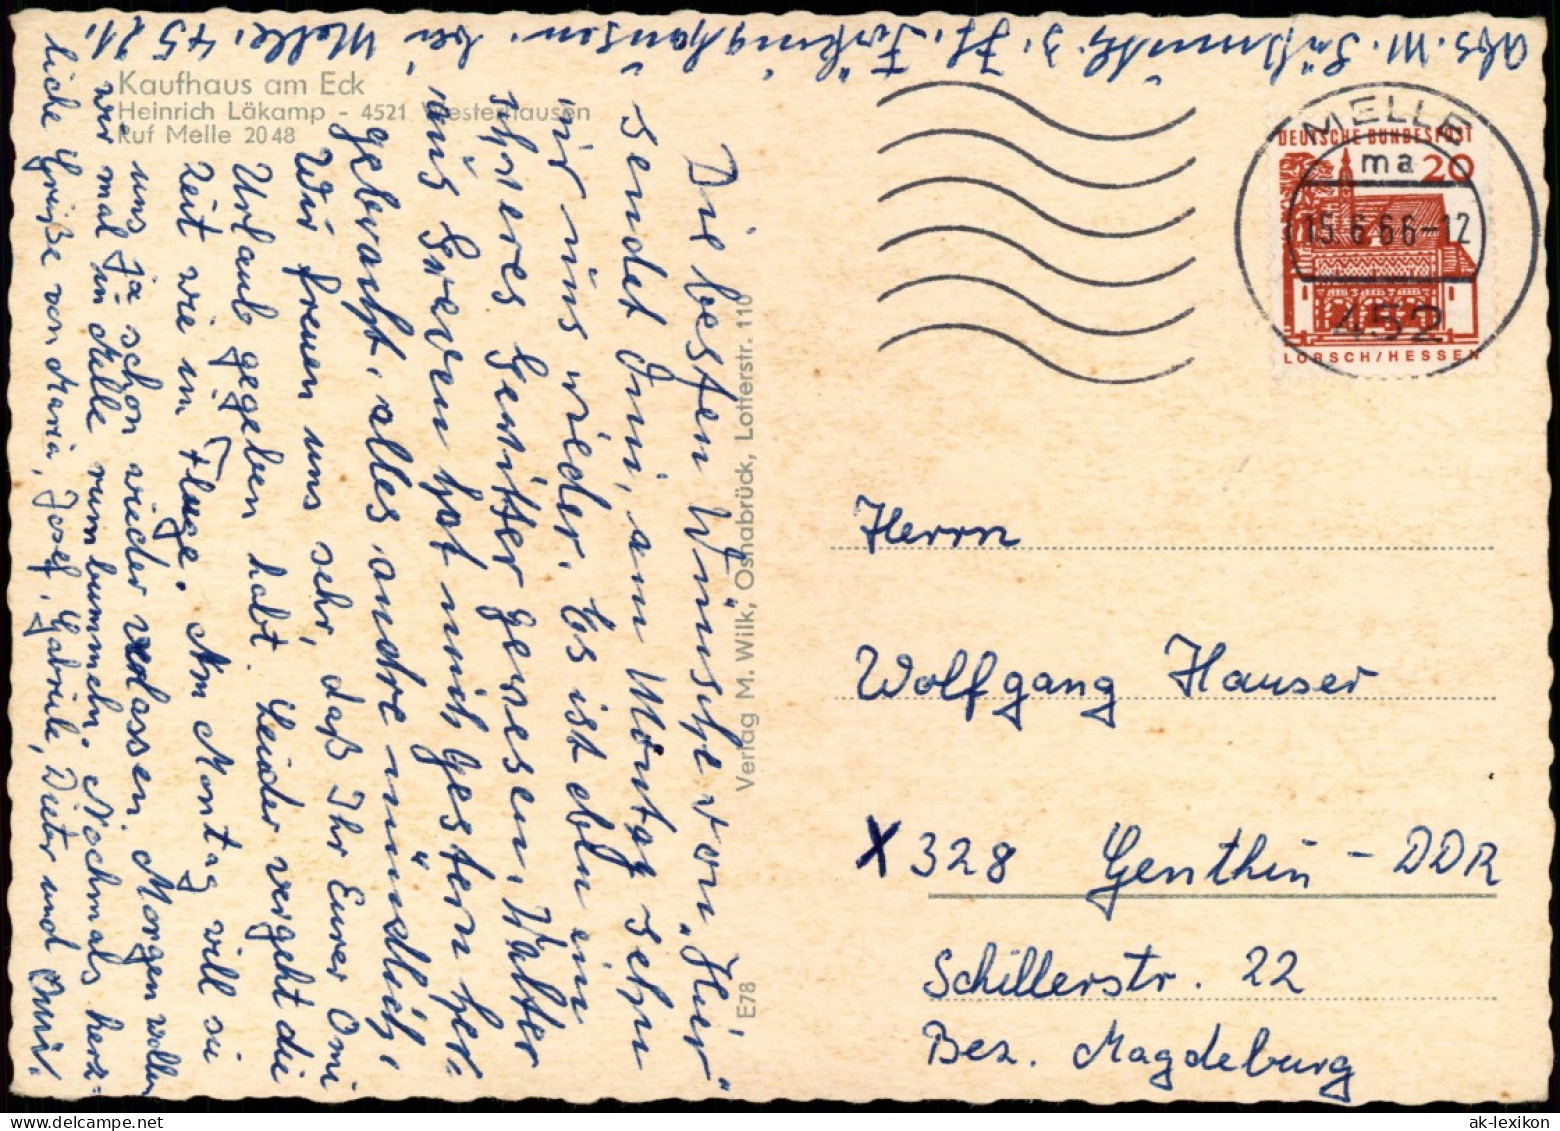 Abs. M.
bei Melle. 4521.
Kaufhaus am Eck
Heinrich Läkamp - 4521 Westerhausen
Ruf Melle 2048
Die besten Wünsche von „Hier“
sendet Omi, am Montag sehn
wir uns wieder. Es ist eben ein
schweres Gewitter gewesen. Walter
aus Greven hat mich gestern her-
gebracht, alles andre mündlich,
Wir freuen uns sehr, daß Ihr Eurer Omi
Urlaub gegeben habt. Leider vergeht die
Zeit wie im Fluge. Am Montag will sie
uns ja schon wieder verlassen. Morgen wollen
wir mal in Melle rumbummeln. Nochmals herz=
liche Grüße von Maria, Josef, Gabriele, Dieter und Omi.
Verlag M. Wilk, Osnabrück, Lotterstr. 110
E78
MELLE
ma
15.6.66-12
452
DEUTSCHE BUNDESPOST
20
LORSCH/HESSEN
Herrn
Wolfgang Hauser
X 328 Genthin - DDR
Schillerstr. 22
Bez. Magdeburg
ak-lexikon